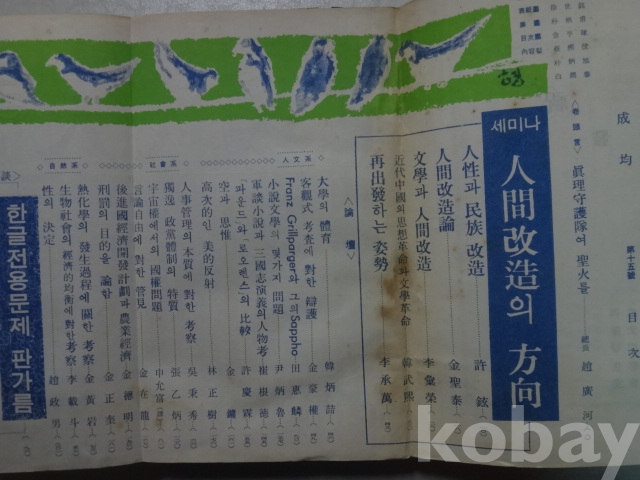 成均
第十五號 目次
<卷頭言> 眞理守護隊여 聖火를 總長 趙廣河
세미나
人間改造의 方向
人性과 民族 改造 許鉉
人間改造論 金聖泰
文學과 人間改造 李彙榮
近代中國의 思想革命과 文學革命 韓武熙
再出發하는 姿勢 李承萬
<論壇>
大學의 體育 韓炳喆
人文系
客觀式 考査에 對한 辯護 金豪權
Franz Grillparger와 그의 Sappho 田惠麟
小說文學의 몇가지 問題 尹炳魯
軍談小說과 三國志演義의 人物考 崔根德
파운드와 로오렌스의 比較 許慶
空과 思惟 金鐘
高次的인 美的反射 林正樹
社會系
人事管理의 本質에 對한 考察 吳秉秀
獨逸 政黨體制의 特質 張乙炳
宇宙權에서의 國權問題 申允富
言論自由에 對한 管見 金在龍
後進國經濟開發計劃과 農業經濟 金德明
刑罰의 目的을 論함 金正奎
自然系
熱化學의 發生過程에 關한 考察 金黃岩
生物社會의 經濟的均衡에 對한 考察 李載斗
性의 決定 趙政男
談
한글전용문제 판가름
kobay